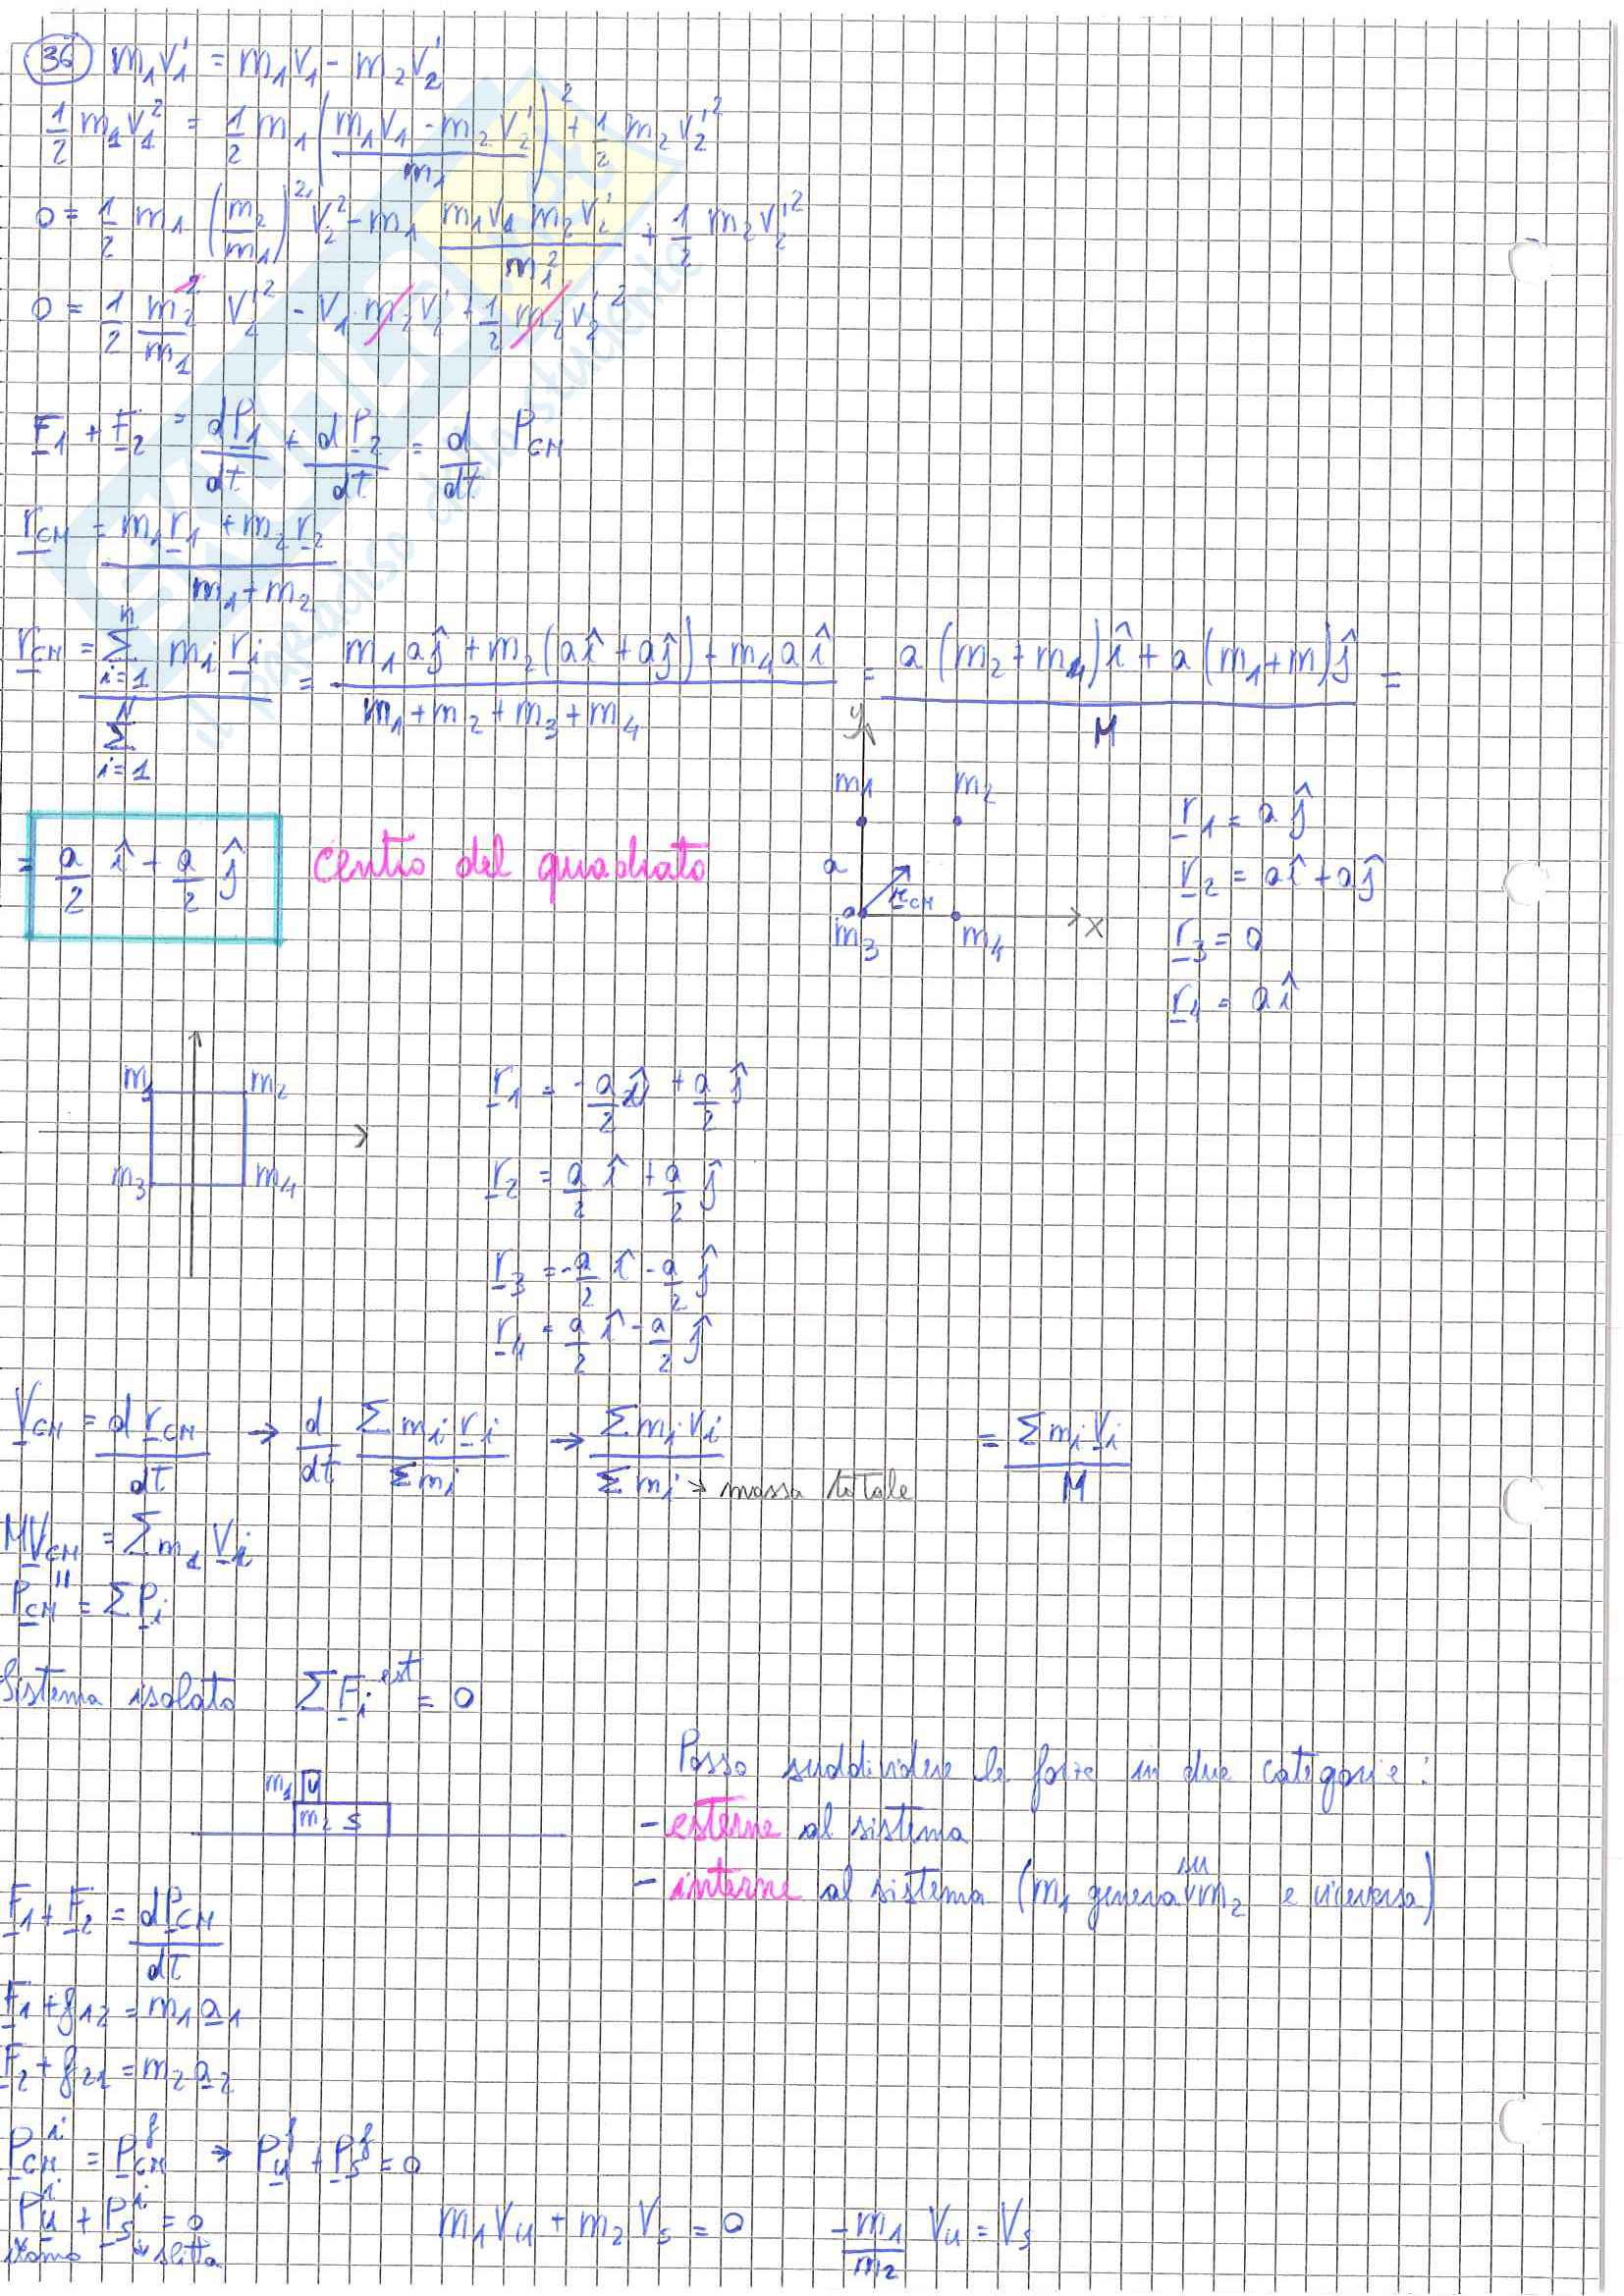 36 m₁v₁' = m₁v₁ - m₂v₂'
1/2 m₁v₁² = 1/2 m₁ ((m₁v₁ - m₂v₂')/m₁)² + 1/2 m₂v₂'²
0 = 1/2 m₁ (m₂/m₁)² v₂² - m₁ (m₁v₁ m₂v₂')/m₁² + 1/2 m₂v₂'²
0 = 1/2 m₂²/m₁ v₂'² - v₁ m₂ v₂' + 1/2 m₂ v₂'²
F₁ + F₂ = dP₁/dt + dP₂/dt = d/dt P_CM
r_CM = (m₁r₁ + m₂r₂)/(m₁ + m₂)
r_CM = Σᵢ₌₁ⁿ mᵢ rᵢ / Σᵢ₌₁ᴺ = (m₁aĵ + m₂(aî + aĵ) + m₄aî)/(m₁ + m₂ + m₃ + m₄) = (a(m₂ + m₄)î + a(m₁ + m)ĵ)/M =
y
m₁ m₂
= a/2 î + a/2 ĵ centro del quadrato
a
r_CM
m₃ m₄ x
r₁ = aĵ
r₂ = aî + aĵ
r₃ = 0
r₄ = aî
m₁ m₂
m₃ m₄
r₁ = -a/2 î + a/2 ĵ
r₂ = a/2 î + a/2 ĵ
r₃ = -a/2 î - a/2 ĵ
r₄ = a/2 î - a/2 ĵ
V_CM = d r_CM/dt → d/dt Σmᵢrᵢ/Σmᵢ → Σmᵢvᵢ/Σmᵢ → massa totale = Σmᵢvᵢ/M
MV_CM = Σm₁Vᵢ
P_CM = ΣPᵢ
Sistema isolato ΣFᵢ^est = 0
Posso suddividere le forze in due categorie:
m₁ u
m₂ s
- esterne al sistema
- interne al sistema (m₁ genera su m₂ e viceversa)
F₁ + F₂ = dP_CM/dt
F₁ + f₁₂ = m₁a₁
F₂ + f₂₁ = m₂a₂
P_CM^i = P_CM^f → P_u^f + P_s^f = 0
P_u^i + P_s^i = 0 m₁V_u + m₂V_s = 0 -m₁/m₂ V_u = V_s
uomo slitta
il paradiso dello studente